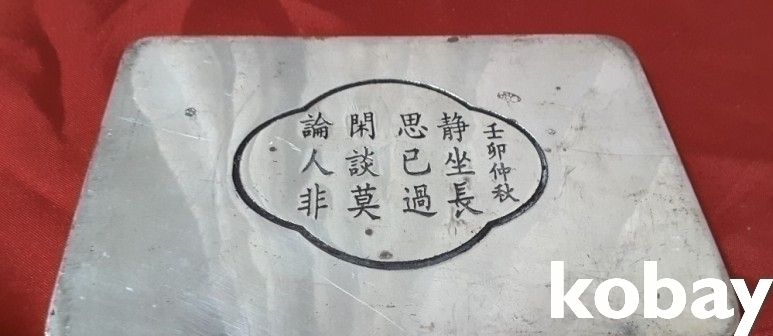 壬卯仲秋
静坐長
思己過
閑談莫
論人非
kobay